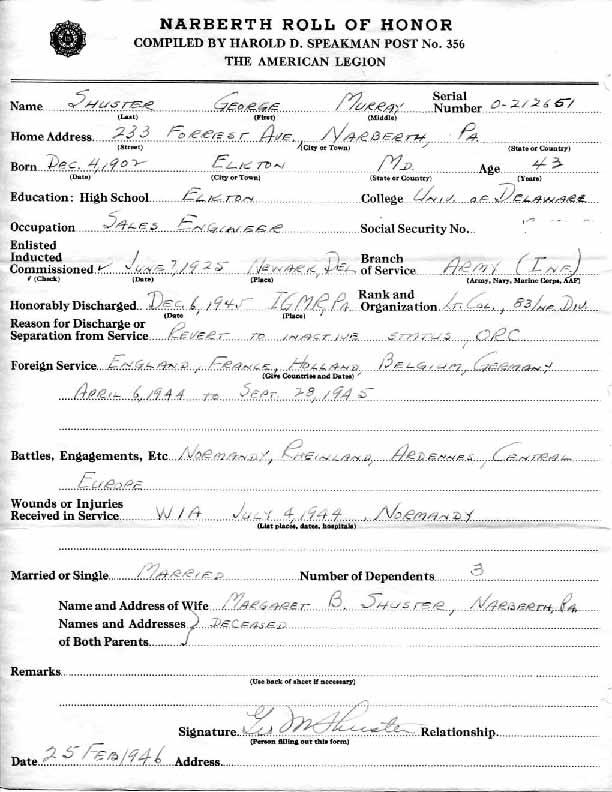 NARBERTH ROLL OF HONOR
COMPILED BY HAROLD D. SPEAKMAN POST No. 356
THE AMERICAN LEGION
Name SHUSTER GEORGE MURRAY Serial Number O-212651
(Last) (First) (Middle)
Home Address 233 FORREST AVE, NARBERTH, PA
(Street) (City or Town) (State or Country)
Born DEC. 4, 1902 ELKTON MD. Age 43
(Date) (City or Town) (State or Country) (Years)
Education: High School ELKTON College UNIV. OF DELAWARE
Occupation SALES ENGINEER Social Security No.
Enlisted
Inducted
Commissioned ✓ JUNE 7, 1925 NEWARK, DEL Branch of Service ARMY (INF)
# (Check) (Date) (Place) (Army, Navy, Marine Corps, AAF)
Honorably Discharged DEC. 6, 1945 IGMR, PA Rank and Organization LT. COL., 83 INF. DIV.
(Date (Place)
Reason for Discharge or
Separation from Service REVERT TO INACTIVE STATUS, ORC
Foreign Service ENGLAND, FRANCE, HOLLAND, BELGIUM, GERMANY
(Give Countries and Dates)
APRIL 6, 1944 TO SEPT. 28, 1945
Battles, Engagements, Etc NORMANDY, RHEINLAND, ARDENNES, CENTRAL
EUROPE
Wounds or Injuries
Received in Service WIA JULY 4, 1944, NORMANDY
(List places, dates, hospitals)
Married or Single MARRIED Number of Dependents 3
Name and Address of Wife MARGARET B. SHUSTER, NARBERTH, PA
Names and Addresses } DECEASED
of Both Parents
Remarks
(Use back of sheet if necessary)
Signature Geo M Shuster Relationship
(Person filling out this form)
Date 25 FEB 1946 Address